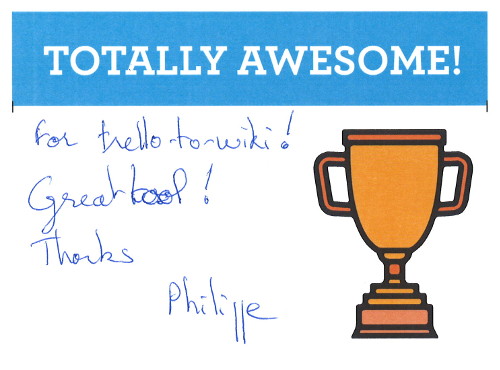 TOTALLY AWESOME!
For trello-to-wiki!
Great tool!
Thanks
Philippe